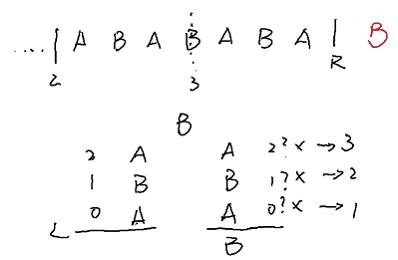 ....| A B A B A B A | B
2 3 R
B
2 A A 2? x → 3
1 B B 1? x → 2
0 A A 0? x → 1
L B